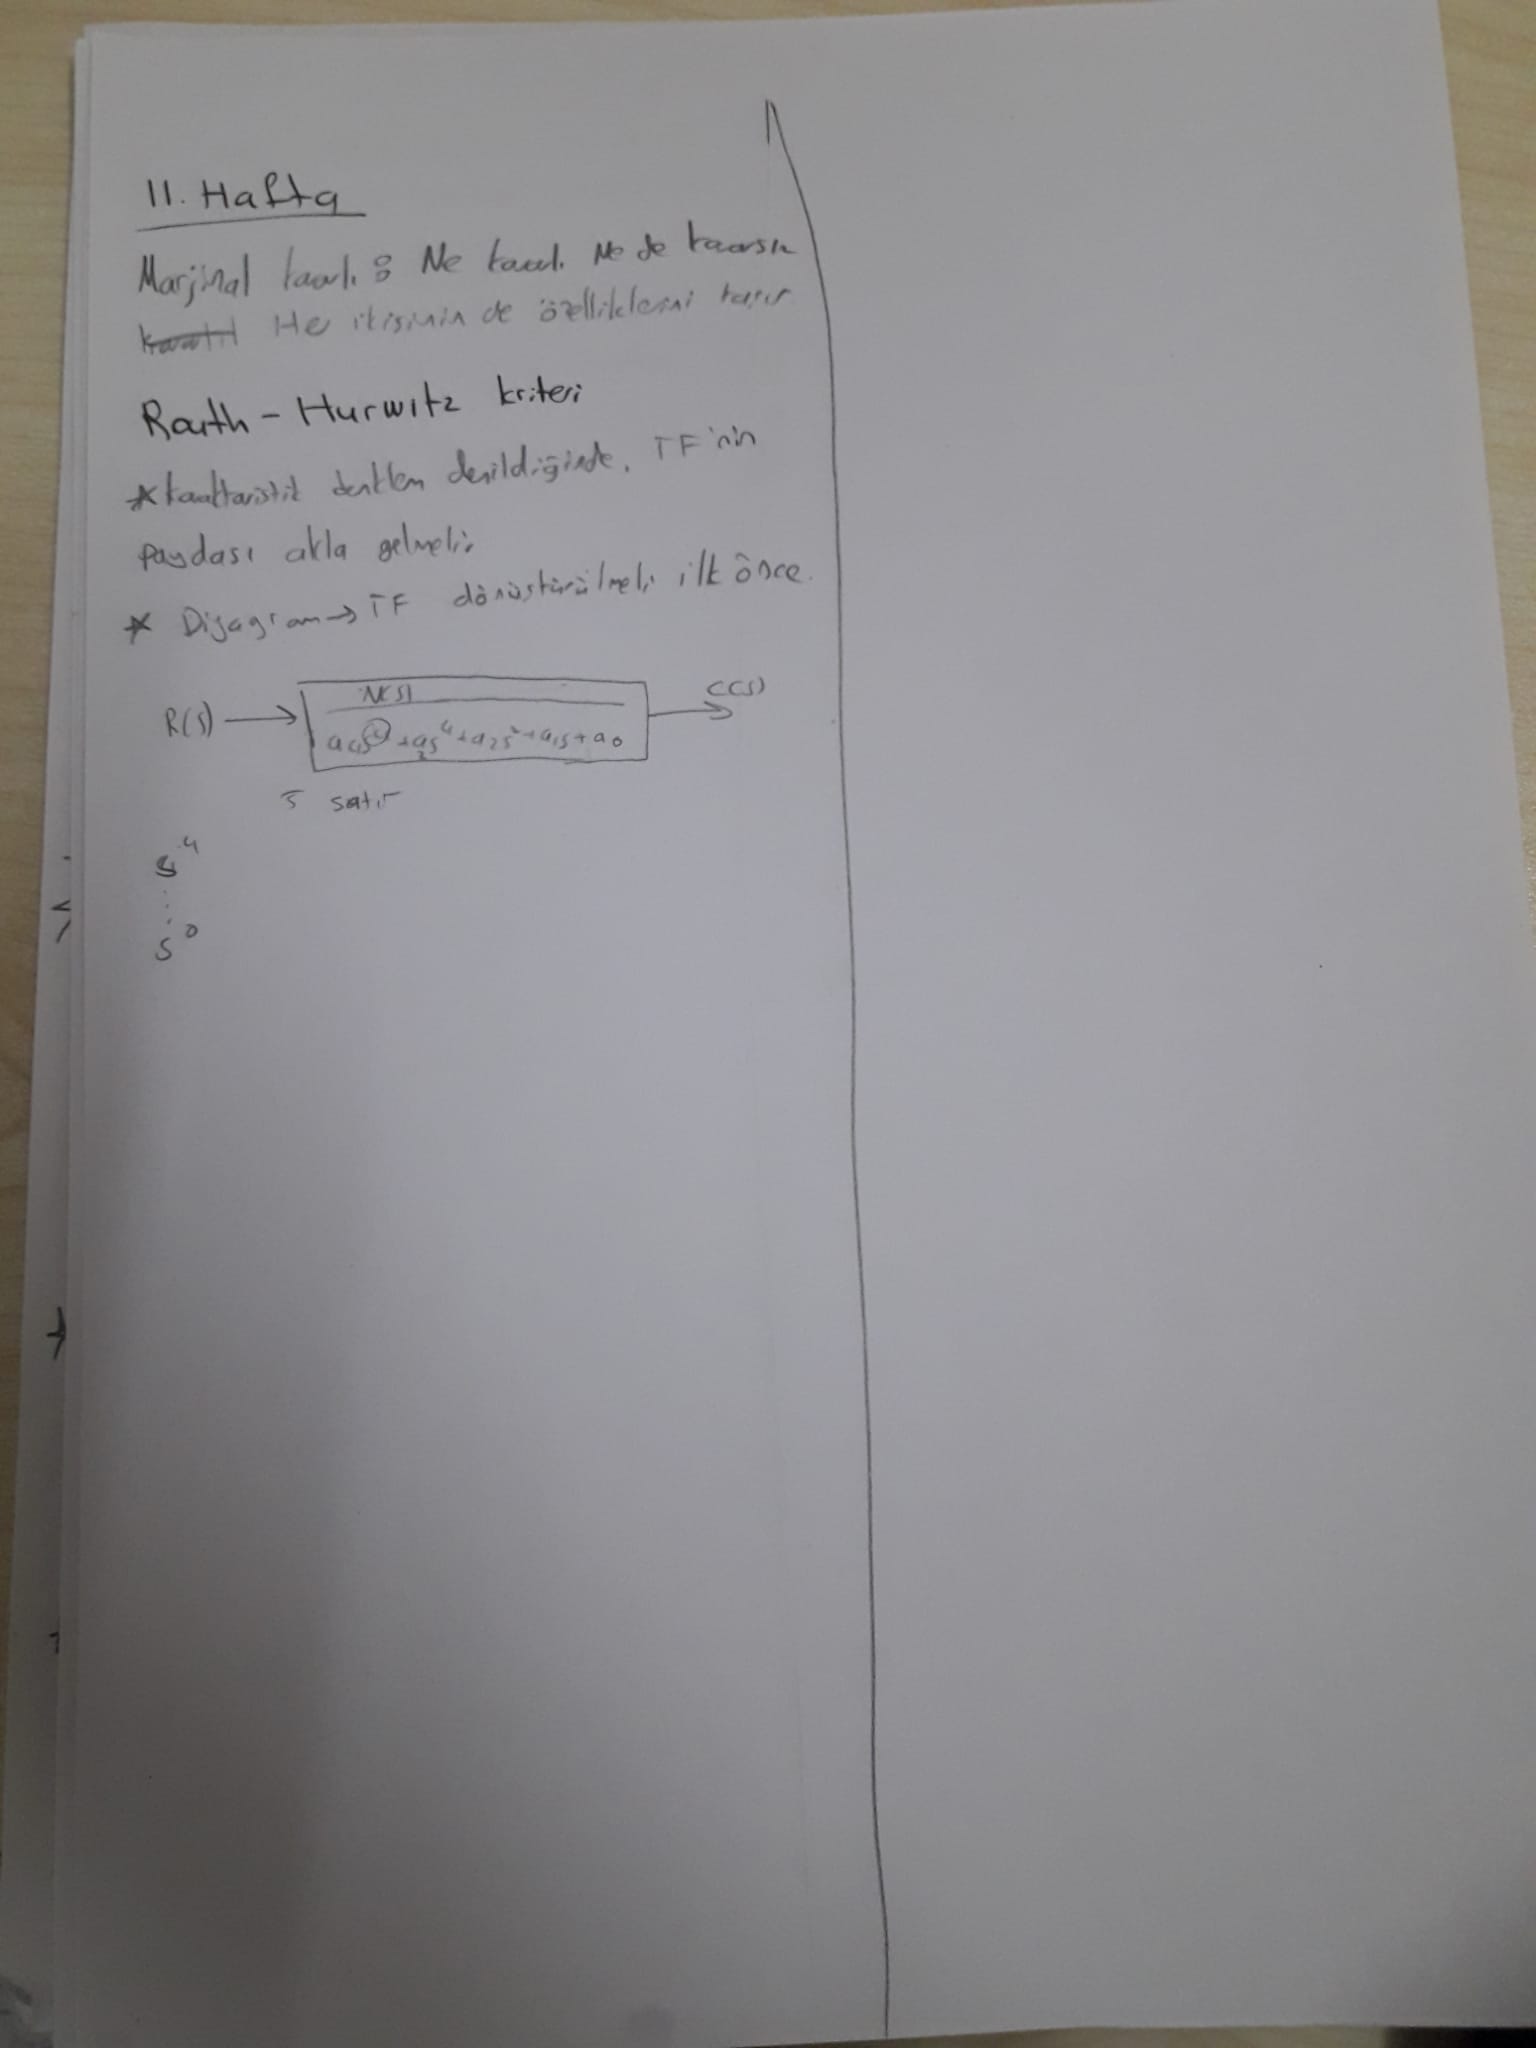 11. Hafta
Marjinal kararlı : Ne kararlı Ne de kararsız
Her ikisinin de özelliklerini taşır
Routh - Hurwitz kriteri
* karakteristik denklem denildiğinde, TF'nin
paydası akla gelmeli.
* Diyagram → TF dönüştürülmeli ilk önce.
N(s)
R(s) → C(s)
a₄s⁴ + a₃s⁴ + a₂s² + a₁s + a₀
5 satır
s⁴
⋮
s⁰